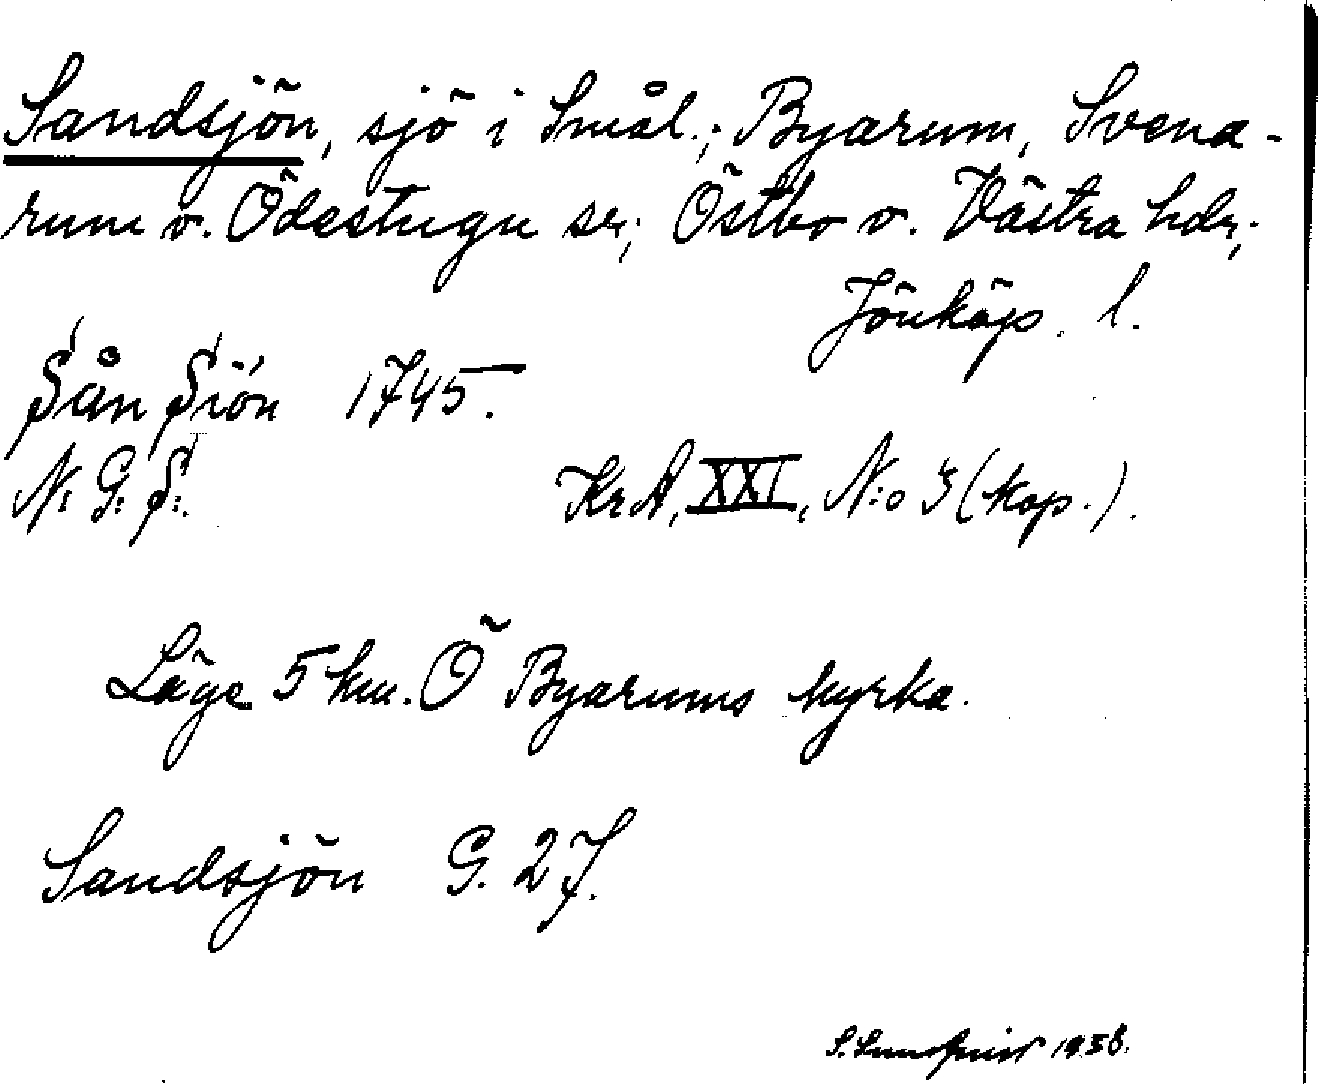 Sandsjön, sjö i Smål.; Byarum, Svena-
rum o. Ödestugu sr; Östbo o. Västra hdr;
Jönköp. l.
Sån Siön 1745.
N: G: S:. KrA, XXI, N:o 3 (kop.).
Läge 5 km. Ö Byarums kyrka.
Sandsjön G. 27.
S. 1936.